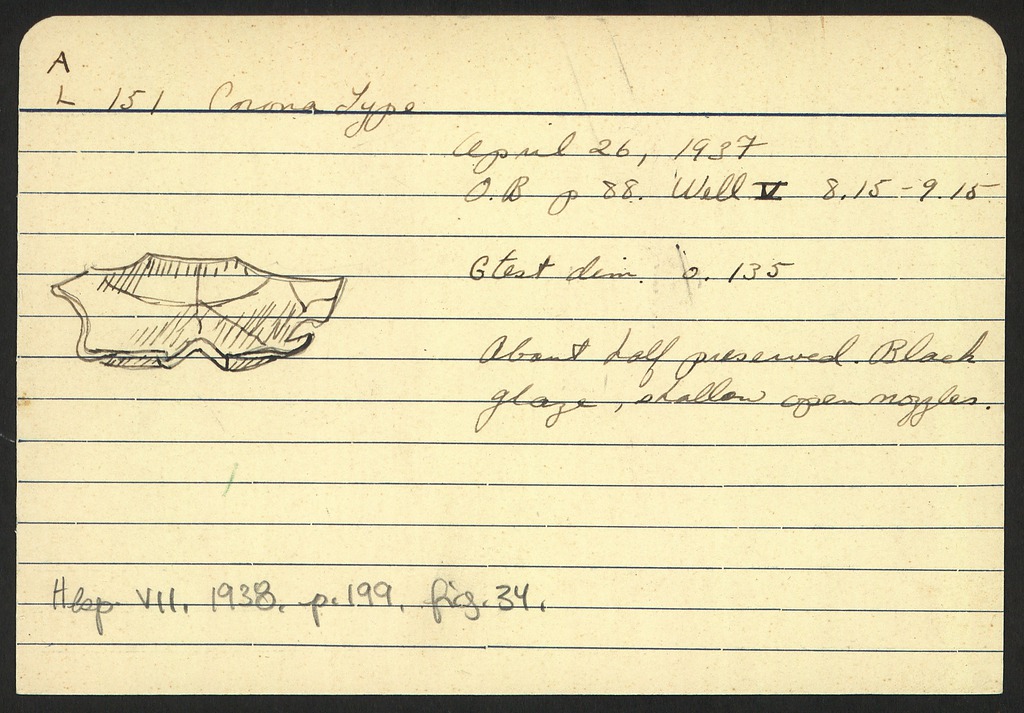 A
L 151 Corona Type
April 26, 1937
O.B p 88. Well V 8.15-9.15
Gtest dim. 0.135
About half preserved. Black
glaze, shallow open nozzles.
Hesp. VII. 1938. p. 199. fig. 34.